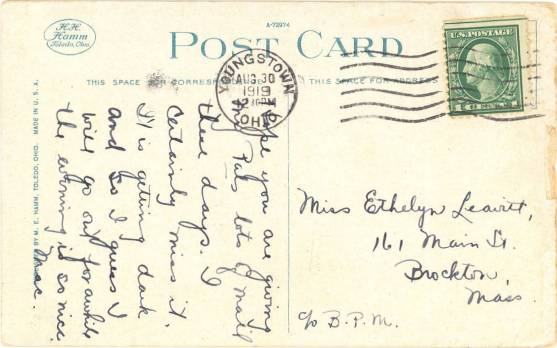 H.H.
Hamm
Toledo, Ohio.
A-72974
POST CARD
THIS SPACE FOR CORRESPONDENCE
THIS SPACE FOR ADDRESS
YOUNGSTOWN
AUG 30
12 30 PM
1919
OHIO
U.S. POSTAGE
MADE IN U.S.A.
BY M. E. HAMM, TOLEDO, OHIO.
Hope you are giving
my Pals lots of mail
these days. I
Certainly miss it.
It is getting dark
and so I guess I
will go out for awhile
the evening is so nice.
Mac.
Miss Ethelyn Leavitt,
161 Main St.
Brockton,
Mass.
c/o B.P.M.